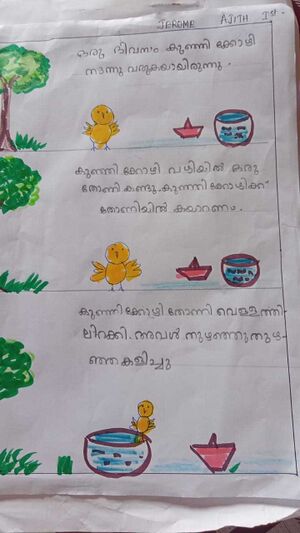 JEROME AJITH Ist
ഒരു ദിവസം കുഞ്ഞി കോഴി
നടന്നു വരുകയായിരുന്നു.
കുഞ്ഞി കോഴി വഴിയിൽ ഒരു
തോണി കണ്ടു. കുഞ്ഞി കോഴിക്ക്
തോണിയിൽ കയറണം.
കുഞ്ഞി കോഴി തോണി വെള്ളത്തി-
ലിറക്കി. അവൾ തുഴഞ്ഞുതുഴ-
ഞ്ഞ കളിച്ചു